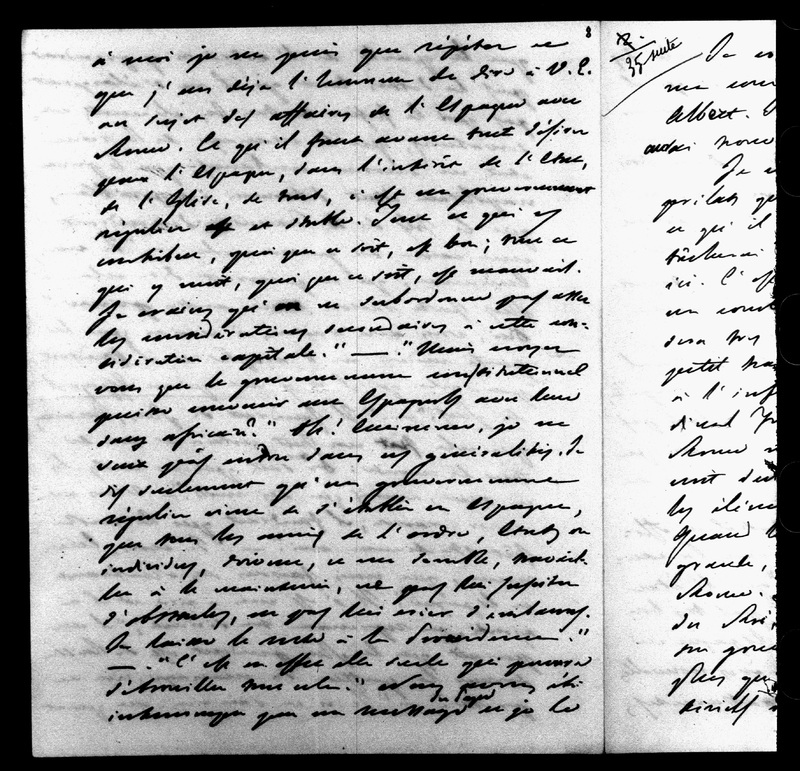 8
à moi je ne puis que répéter ce
que j'ai eu déjà l'honneur de dire à V. E.
au sujet des affaires de l'Espagne avec
Rome. Ce qu'il faut avant tout désirer
pour l'Espagne, dans l'intérêt de l'Etat,
de l'Eglise, de tout, c'est un gouvernement
régulier et stable. Tout ce qui y
contribue, quoi que ce soit, est bon; tout ce
qui y nuit, quoi que ce soit, est mauvais.
Je crains qu'on ne subordonne pas assez
les considérations secondaires à cette con-
sidération capitale." — "Mais croyez
vous que le gouvernement constitutionnel
puisse convenir aux Espagnols avec leur
sang africain?" "Ah! Eminence, je ne
veux pas entrer dans ces généralités. Je
dis seulement qu'un gouvernement
régulier vient de s'établir en Espagne,
que tous les amis de l'ordre, Etats ou
individus, doivent, ce me semble, travail-
ler à le maintenir, ne pas lui susciter
d'obstacles, ne pas lui créer d'embarras.
Je laisse le reste à la Providence."
— "C'est en effet elle seule qui pourra
débrouiller tout cela." Nous avons été
interrompus par un message du Pape et je le
35 suite
Je
me
Albert.
Je
ce qui il
ici. C'est
un
sera très
petit
à l'inf
Rome
les
Quand
grande,
Rome.
du
son gouv
Plus